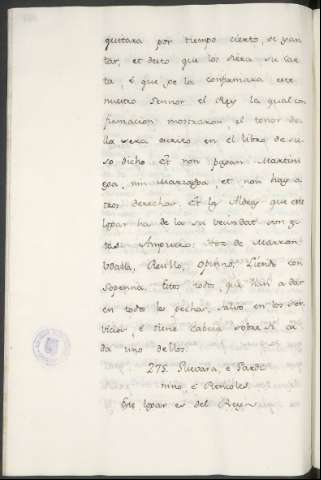 quitara por tiempo cierto, se yan
tar, et dixo que los diera su car
ta, é que se la confirmara este
nuestro Sennor el Rey la qual con
firmacion mostraron, el tenor de
lla sera escrito en el libro de su
so dicho Et non pagan Martini
ega, nin Marzadga, et non hay o
tros derechos. Et las Aldeas que este
logar ha de la su vecindat son es
tas: Ampuero, Hoz de Marron
Udalla, Rasillo, Liendo con
Sopenna. Estos todos, que han a dar
en todo los pechos, salvo en los ser
vicios, é tiene cabeza sobre si ca
da uno dellos.
275. Guevara, e Pardi
nino, e
Este logar es del Rey